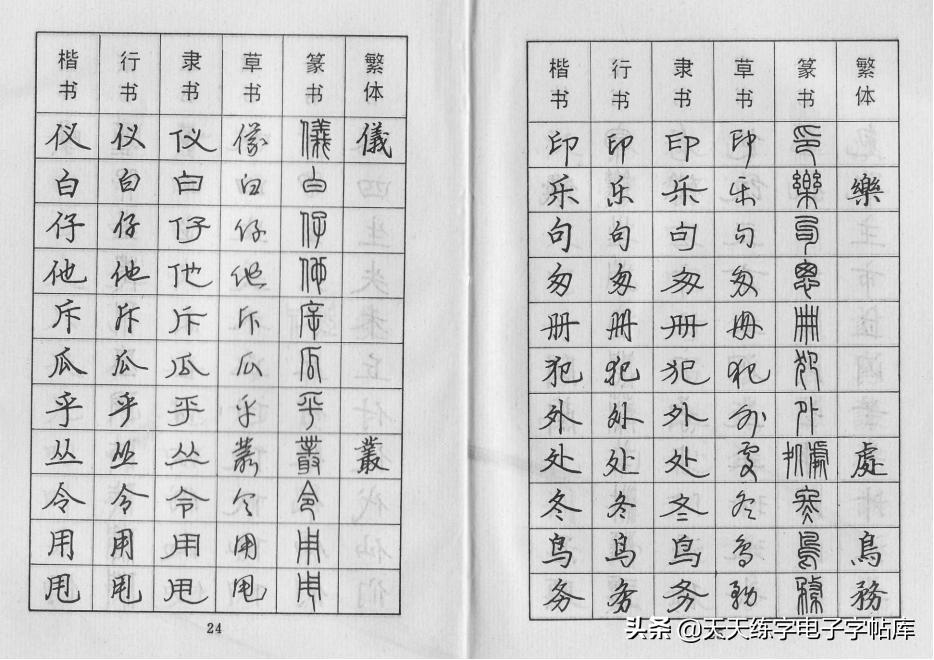 楷书 行书 隶书 草书 篆书 繁体
仪 仪 仪 儀 儀 儀
白 白 白 白 白
仔 仔 仔 仔 仔
他 他 他 他 他
斥 斥 斥 斥 斥
瓜 瓜 瓜 瓜 瓜
乎 乎 乎 乎 乎
丛 丛 丛 叢 叢 叢
令 令 令 令 令
用 用 用 用 用
甩 甩 甩 甩 甩
24
楷书 行书 隶书 草书 篆书 繁体
印 印 印 印 印
乐 乐 乐 乐 樂 樂
句 句 句 句 句
匆 匆 匆 匆 匆
册 册 册 册 册
犯 犯 犯 犯 犯
外 外 外 外 外
处 处 处 处 處 處
冬 冬 冬 冬 冬
鸟 鸟 鸟 鸟 鳥 鳥
务 务 务 務 務 務
头条 @天天练字电子字帖库